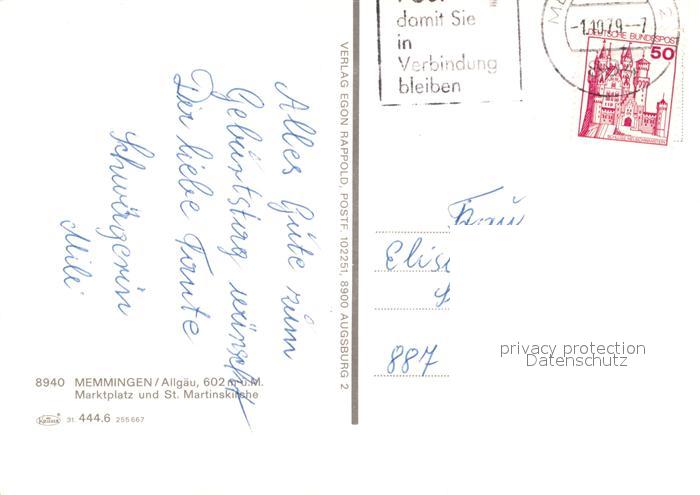 damit Sie
in
Verbindung
bleiben
-1.10.79.-7
DEUTSCHE BUNDESPOST
50
VERLAG EGON RAPPOLD, POSTF. 102251, 8900 AUGSBURG 2
Alles Gute zum
Geburtstag wünscht
Dir liebe Tante
Schwägerin
Mili
Frau
Elis
887
privacy protection
Datenschutz
8940 MEMMINGEN/Allgäu, 602 m ü.M.
Marktplatz und St. Martinskirche
Krüger 31 444.6 255667